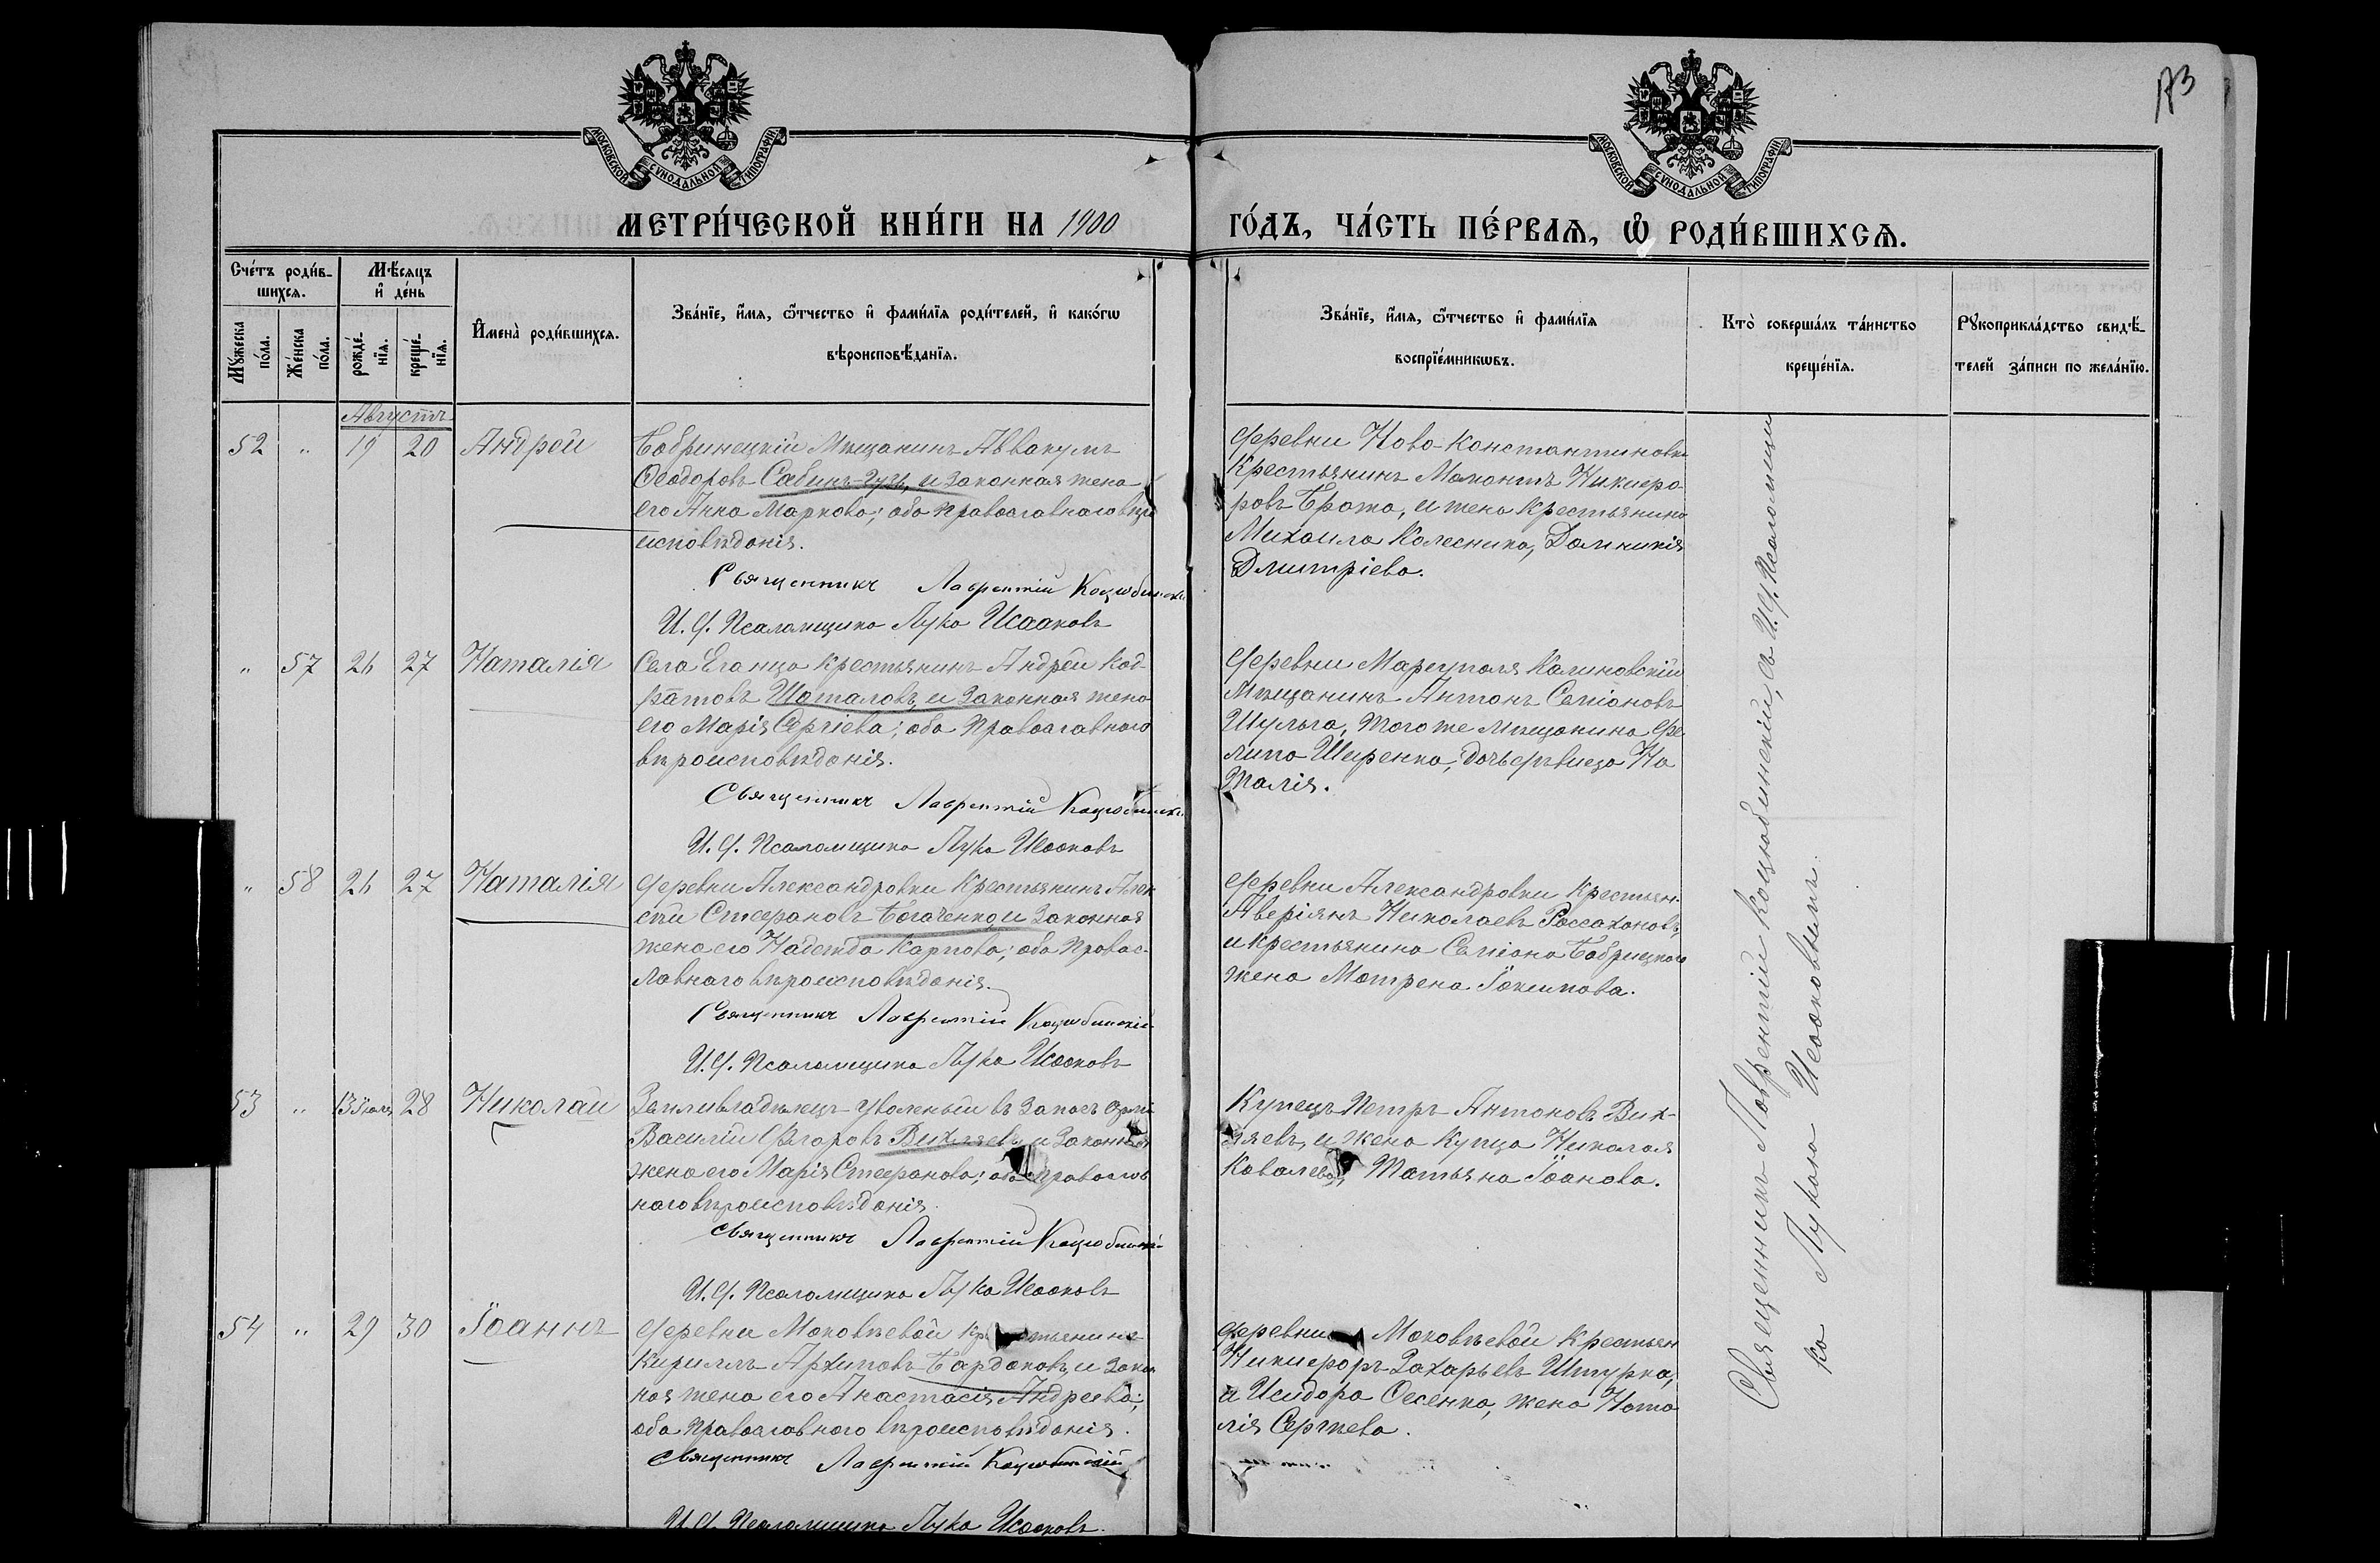 173
МОСКОВСКОЙ СѴНОДАЛЬНОЙ ТИПОГРАФІИ
МОСКОВСКОЙ СѴНОДАЛЬНОЙ ТИПОГРАФІИ
МЕТРИ́ЧЕСКОЙ КНИ́ГИ НА 1900 ГО́ДЪ, ЧА́СТЬ ПЕ́РВАѦ, Ѡ РОДИ́ВШИХСѦ.
Сче́тъ роди́в-
шихсѧ.
Мꙋжеска по́ла.
Же́нска по́ла.
Мѣ́сѧцъ
и҆ де́нь
рожде́-
нїѧ.
креще́-
нїѧ.
И҆мена̀ роди́вшихсѧ.
Зва́нїе, и҆́мѧ, ѻ҆́тчество и҆ фами́лїѧ роди́телей, и҆ како́гѡ
вѣроисповѣ́данїѧ.
Зва́нїе, и҆́мѧ, ѻ҆́тчество и҆ фами́лїѧ
воспрїе́мникѡвъ.
Кто̀ соверша́лъ та́инство
креще́нїѧ.
Рꙋкоприкла́дство свидѣ́-
телей за́писи по жела́нїю.
Августъ
52 " 19 20 Андрей
Бобринецкій Мѣщанинъ Аввакумъ
Ѳеодоровъ Сабинъ-Гузь, и законная жена
его Анна Маркова; оба православнаго вѣро
исповѣданія.
Священникъ Лаврентій Коцюбинскій
И. д. Псаломщика Лука Исааковъ
Деревни Ново-Константиновки
Крестьянинъ Мамонтъ Никифо-
ровъ Ерома, и жена крестьянина
Михаила Колесника, Домникія
Дмитріева.
" 57 26 27 Наталія
Села Еланца крестьянинъ Андрей Код-
ратовъ Шаталовъ, и законная жена
его Марія Сергіева; оба православнаго
вѣроисповѣданія.
Священникъ Лаврентій Коцюбинскій
И. д. Псаломщика Лука Исааковъ
Деревни Маріуполя Калиновскій
Мѣщанинъ Антонъ Семіоновъ
Шульга, того же мѣщанина Фи
липа Ширенка, дочь девица На
талія.
" 58 26 27 Наталія
Деревни Александровки Крестьянинъ Алек
сѣй Стефановъ Богаченко, и законная
жена его Надежда Карпова; оба право-
славнаго вѣроисповѣданія.
Священникъ Лаврентій Коцюбинскій
И. д. Псаломщика Лука Исааковъ
Деревни Александровки Крестьян.
Аверіянъ Николаевъ Россахановъ,
и крестьянина Семіона Бобрицкаго
жена Мотрена Іокимова.
53 " 13 Іюля 28 Николай
Землевладѣлецъ уволеный въ запасъ арміи
Василій Ѳедоровъ Вихляевъ, и законная
жена его Марія Стефанова; оба православ
наго вѣроисповѣданія.
Священникъ Лаврентій Коцюбинскій
И. д. Псаломщика Лука Исааковъ
Купецъ Петръ Антоновъ Вих-
ляевъ, и жена купца Николая
Ковалева, Татьяна Іоанова.
54 " 29 30 Іоаннъ
Деревни Маковѣевой крестьянинъ
Кириллъ Архиповъ Бардаковъ, и закон
ная жена его Анастасія Андреева;
оба православнаго вѣроисповѣданія.
Священникъ Лаврентій Коцюбинскій
И. д. Псаломщика Лука Исааковъ.
Деревни Маковѣевой Крестьян
Никифоръ Захарьевъ Штурка,
и Исидора Овсенка, жена Ната
лія Сергѣева.
Священникъ Лаврентій Коцюбинскій, съ И. д. Псаломщи
ка Лукою Исааковымъ.